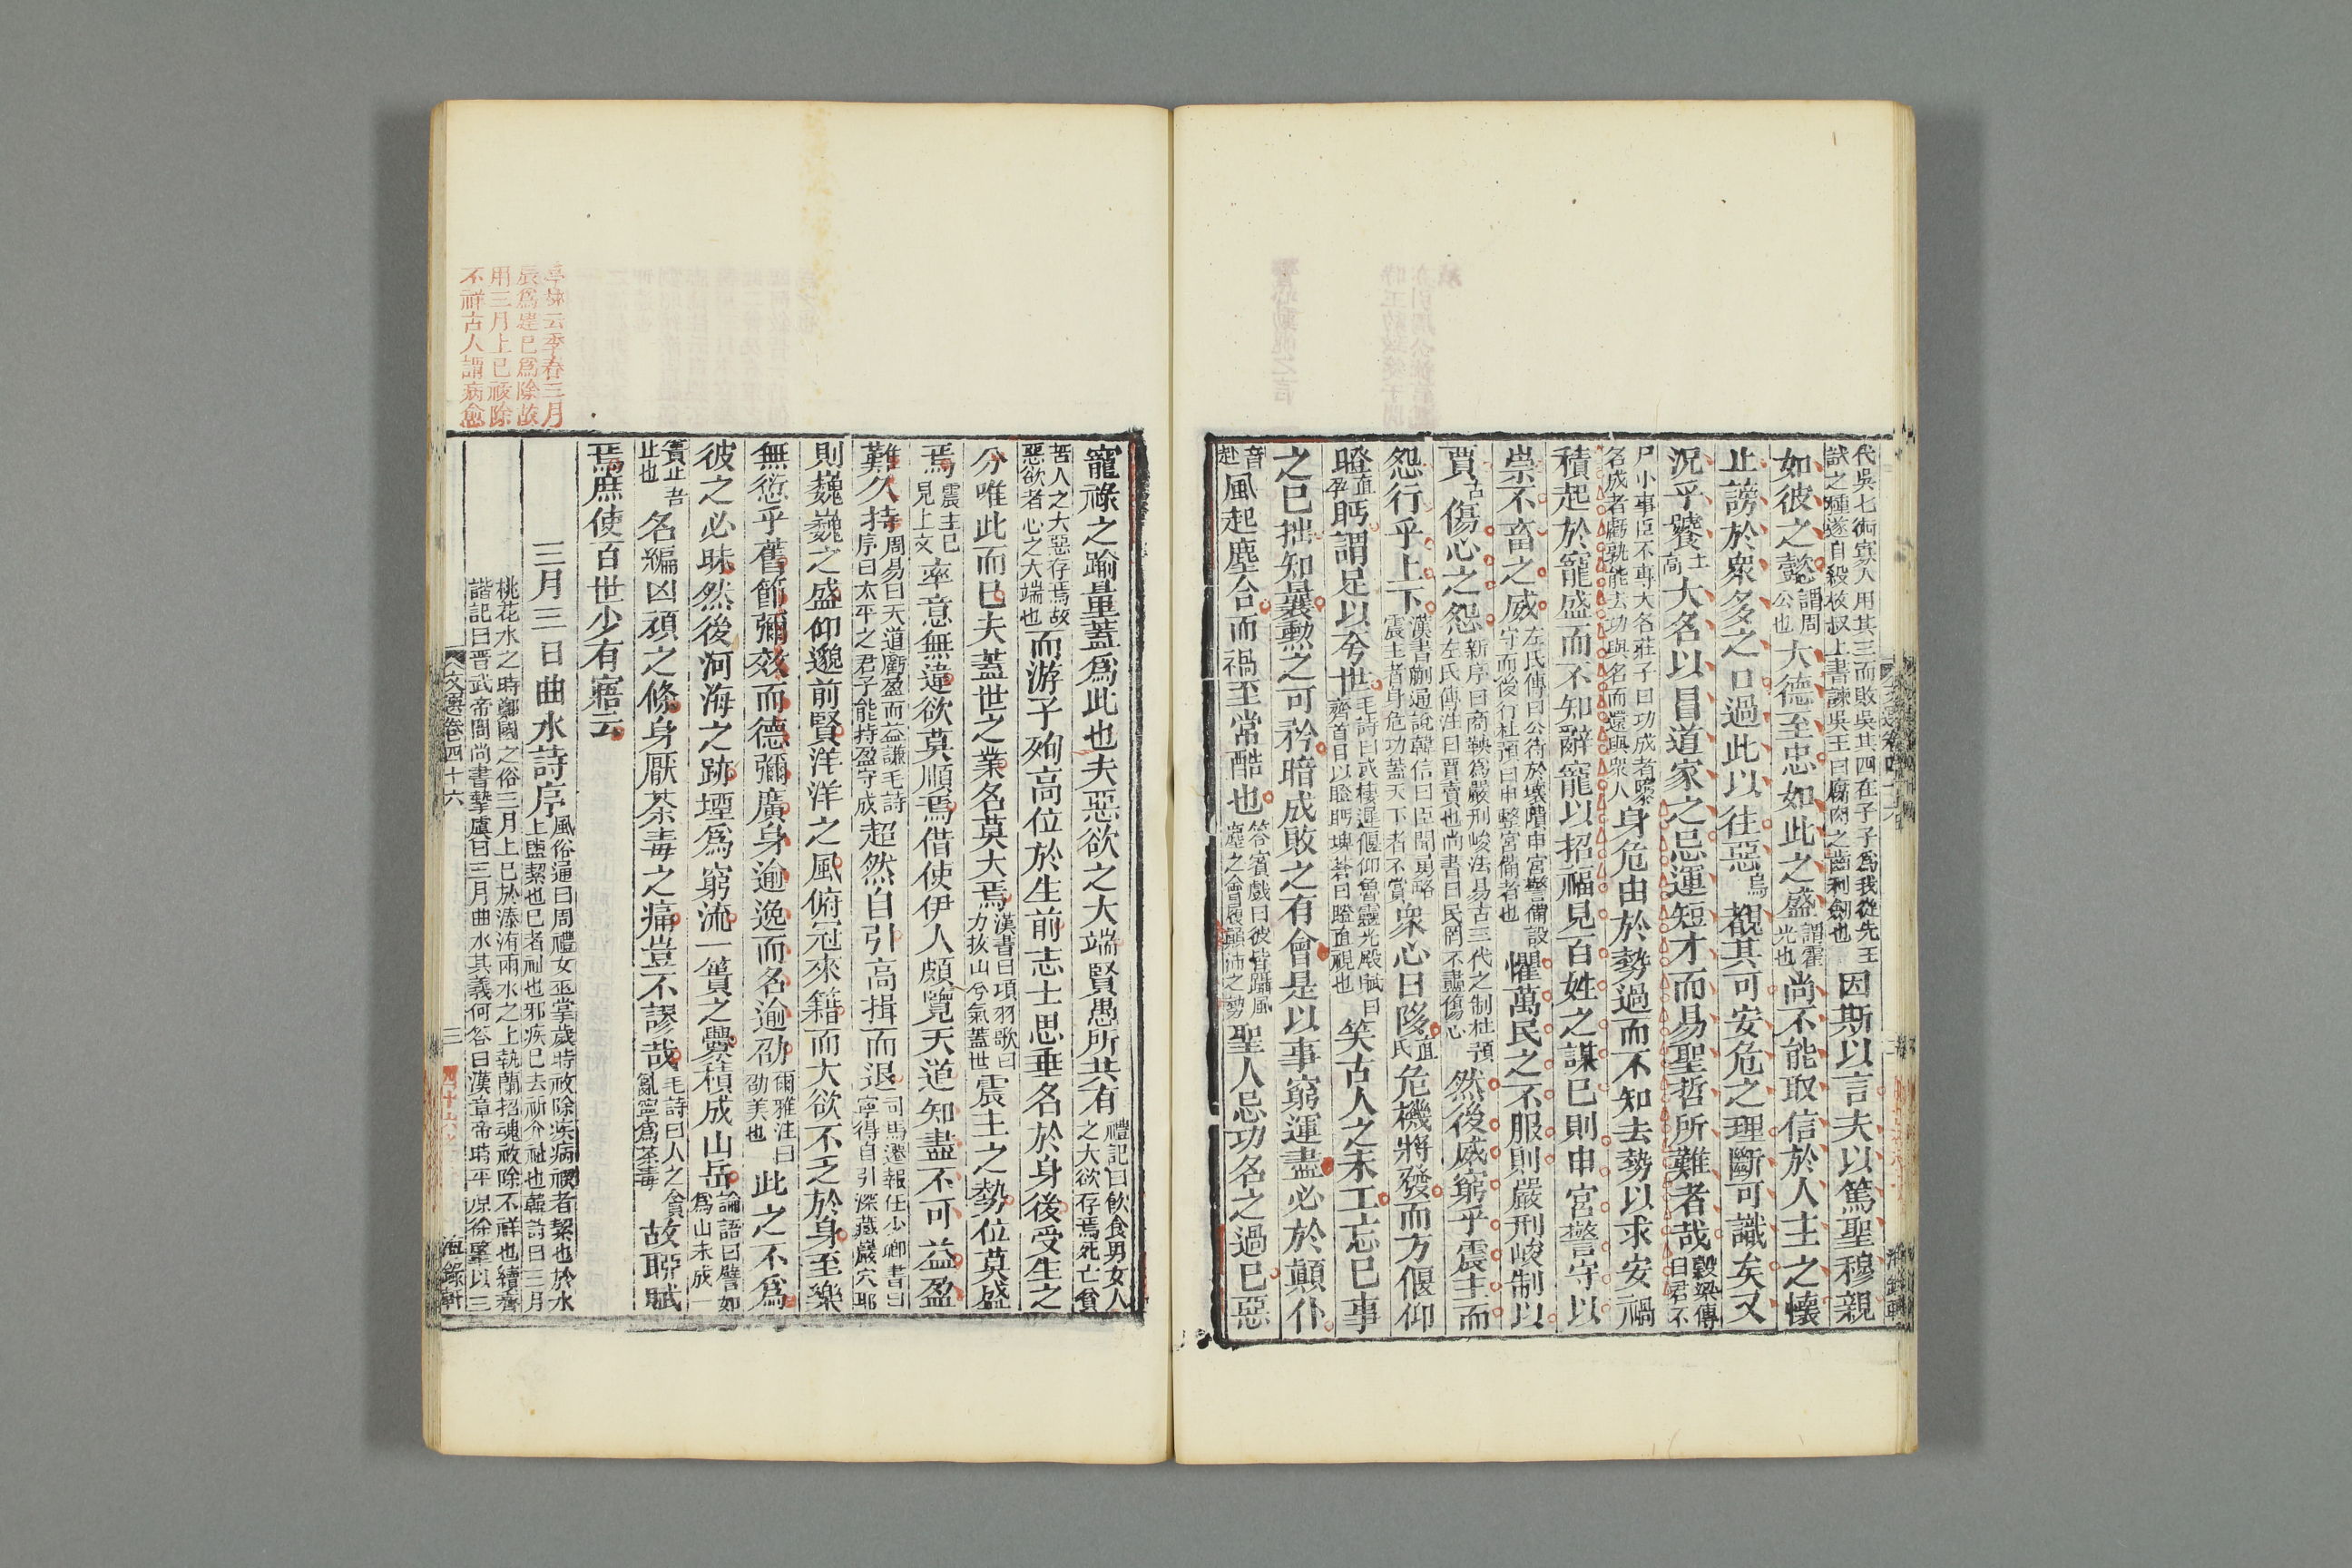 代吳七術寡人用其三而敗吳其四在子子爲我從先王
試之種遂自殺枚叔上書諫吳王曰腐肉之齒利劍也
因斯以言夫以篤聖穆親
如彼之懿
謂周
公也
大德至忠如此之盛
謂霍
光也
尚不能取信於人主之懷
止謗於衆多之口過此以往惡
烏
覩其可安危之理斷可識矣又
況乎饕
土
高
大名以冒道家之忌運短才而易聖哲所難者哉
穀梁傳
曰君不
尸小事臣不專大名莊子曰功成者隳
名成者虧孰能去功與名而還與衆人
身危由於勢過而不知去勢以求安禍
積起於寵盛而不知辭寵以招福見百姓之謀已則申宮警守以
崇不畜之威
左氏傳曰公待於壞隤申宮儆備設
守而後行杜預曰申整宮備者也
懼萬民之不服則嚴刑峻制以
賈
古
傷心之怨
新序曰商鞅爲嚴刑峻法易古三代之制杜預
左氏傳注曰賈賣也尚書曰民罔不盡傷心
然後威窮乎震主而
怨行乎上下
漢書蒯通說韓信曰臣聞勇略
震主者身危功蓋天下者不賞
衆心日陊
直
氏
危機將發而方偃仰
瞪
直
孕
眄謂足以夸世
毛詩曰或棲遲偃仰魯靈光殿賦曰
齊首目以瞪眄埤蒼曰瞪直視也
笑古人之未工忘已事
之已拙知曩勲之可矜暗成敗之有會是以事窮運盡必於顛仆
音
赴
風起塵合而禍至常酷也
答賓戲曰彼皆躡風
塵之會履顛沛之勢
聖人忌功名之過已惡
寵祿之踰量蓋爲此也夫惡欲之大端賢愚所共有
禮記曰飲食男女人
之大欲存焉死亡貧
苦人之大惡存焉故
惡欲者心之大端也
而游子殉高位於生前志士思垂名於身後受生之
分唯此而已夫蓋世之業名莫大焉
漢書曰項羽歌曰
力拔山兮氣蓋世
震主之勢位莫盛
焉
震主已
見上文
率意無違欲莫順焉借使伊人頗覽天道知盡不可益盈
難久持
周易曰天道虧盈而益謙毛詩
序曰太平之君子能持盈守成
超然自引高揖而退
司馬遷報任少卿書曰
寧得自引深藏巖穴耶
則巍巍之盛仰邈前賢洋洋之風俯冠來籍而大欲不乏於身至樂
無愆乎舊節彌效而德彌廣身逾逸而名逾劭
爾雅注曰
劭美也
此之不爲
彼之必昧然後河海之跡堙爲窮流一簣之釁積成山岳
論語曰譬如
爲山未成一
簣止吾
止也
名編凶頑之條身厭荼毒之痛豈不謬哉
毛詩曰人之貪
亂寧爲荼毒
故聊賦
焉庶使百世少有寤云
三月三日曲水詩序
風俗通曰周禮女巫掌歲時祓除疾病禊者絜也於水
上盥絜也巳者祉也邪疾已去祈介祉也韓詩曰三月
桃花水之時鄭國之俗三月上巳於溱洧兩水之上執蘭招魂祓除不祥也續齊
諧記曰晉武帝問尚書摯虞曰三月曲水其義何答曰漢章帝時平原徐肇以三
文選卷四十六
三
海錄軒
云季春三月
辰爲建巳爲除故
用三月上巳祓除
不祥古人謂病愈